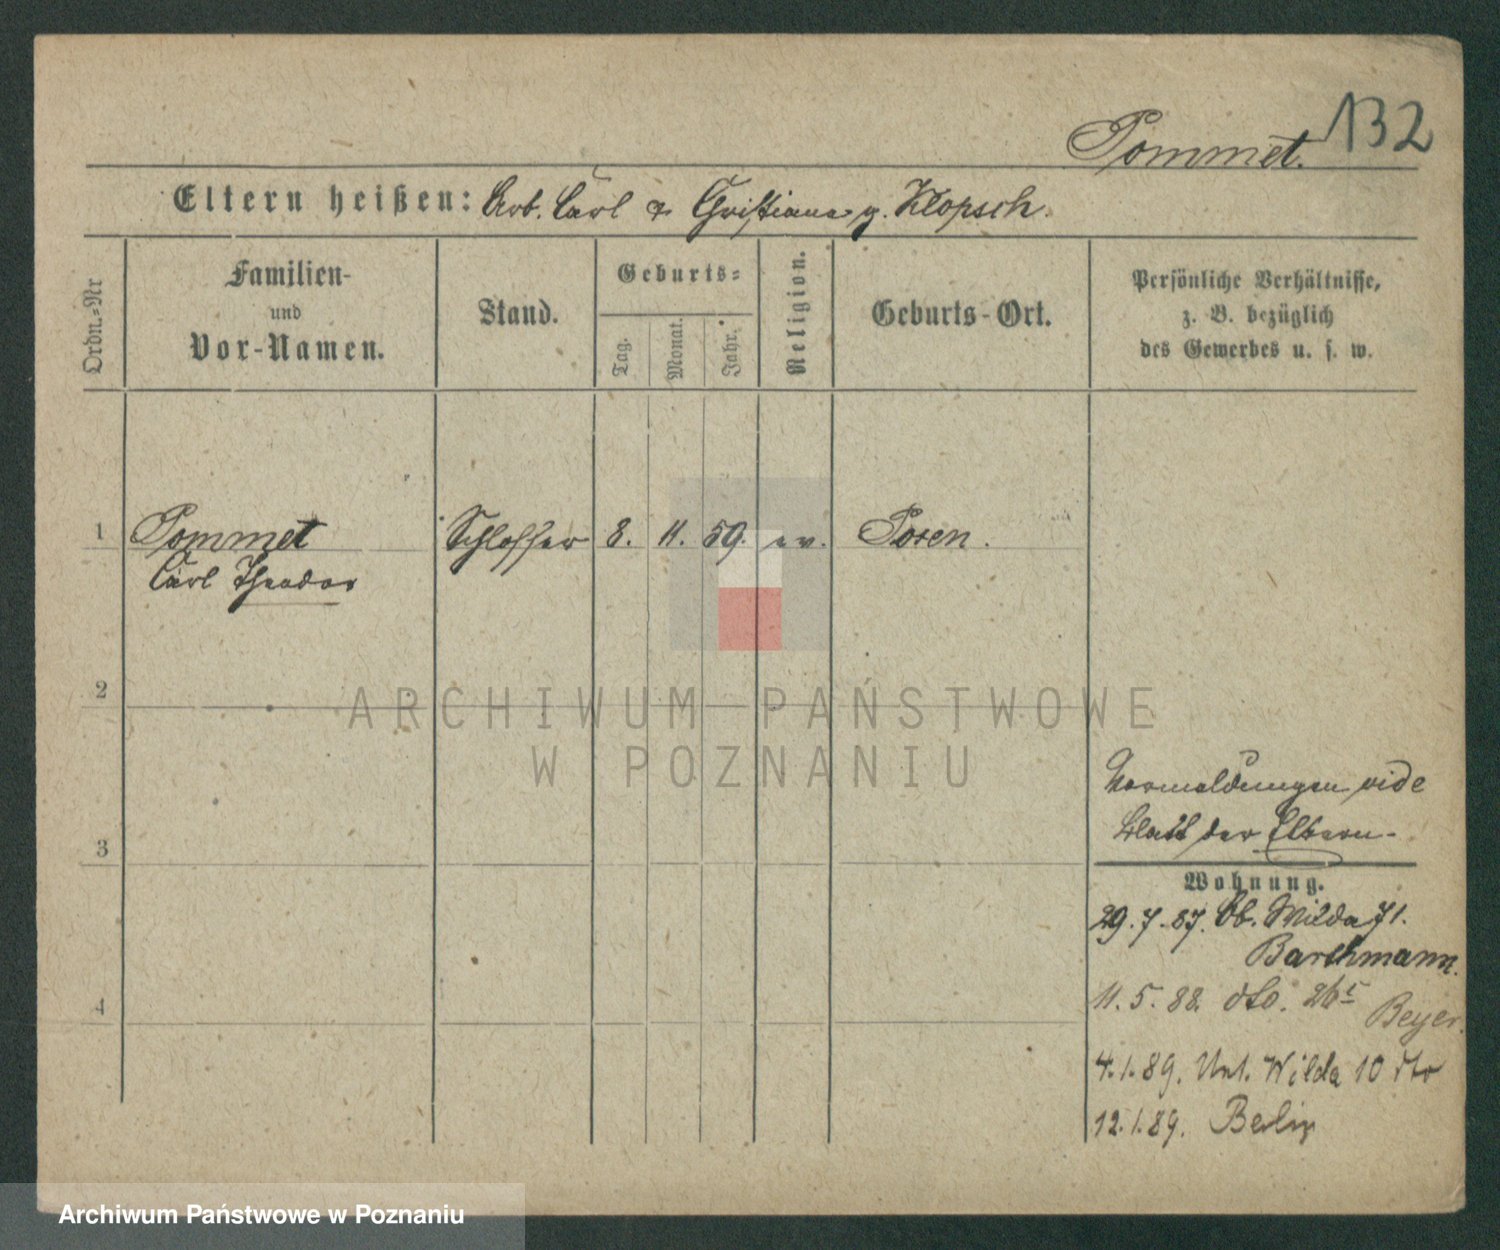 132
Pommet.
Eltern heißen: Arb. Carl & Christiane g. Klopsch.
Ordn.=Nr
Familien-
und
Vor-Namen.
Stand.
Geburts=
Tag.
Monat.
Jahr.
Religion.
Geburts-Ort.
Persönliche Verhältnisse,
z. B. bezüglich
des Gewerbes u. s. w.
1 Pommet Schlosser 8. 11. 59. ev. Posen.
Carl Theodor
2
ARCHIWUM PAŃSTWOWE
W POZNANIU
Vormeldungen vide
3 Blatt der Eltern.
Wohnung.
29.7.87. Ob. Wilda 71.
Barthmann.
4 11.5.88. dto. 26
Beyer.
4.1.89. Unt. Wilda 10 dto
12.1.89. Berlin
Archiwum Państwowe w Poznaniu